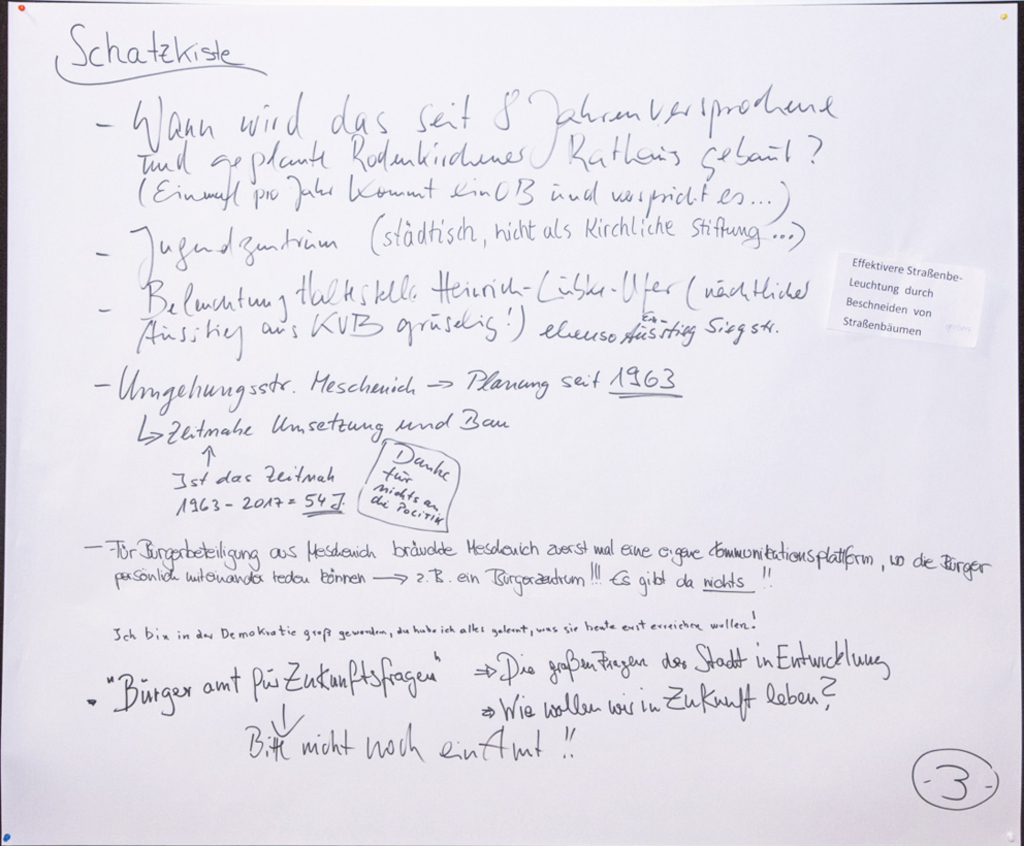 Schatzkiste
- Wann wird das seit 8 Jahren versprochene
und geplante Rodenkirchener Rathaus gebaut?
(Einmal pro Jahr kommt ein OB und verspricht es...)
- Jugendzentrum (städtisch, nicht als kirchliche Stiftung...)
- Beleuchtung Haltestelle Heinrich-Lübke-Ufer (nächtlicher
Ausstieg aus KVB gruselig!) ebenso Ausstieg Siegstr.
Ein-
Effektivere Straßenbe-
Leuchtung durch
Beschneiden von
Straßenbäumen
- Umgehungsstr. Meschenich → Planung seit 1963
↳ Zeitnahe Umsetzung und Bau
↑
Ist das Zeitnah
1963 - 2017 = 54 J.
Danke
für
nichts an
die Politik
- Für Bürgerbeteiligung aus Meschenich bräuchte Meschenich zuerst mal eine eigene Kommunikationsplattform, wo die Bürger
persönlich miteinander reden können → z.B. ein Bürgerzentrum!!! Es gibt da nichts!!
Ich bin in der Demokratie groß geworden, da habe ich alles gelernt, was sie heute erst erreichen wollen!
• "Bürgeramt für Zukunftsfragen" ⇒ Die großen Fragen der Stadt in Entwicklung
⇒ Wie wollen wir in Zukunft leben?
↓
Bitte nicht noch ein Amt!!
- 3 -